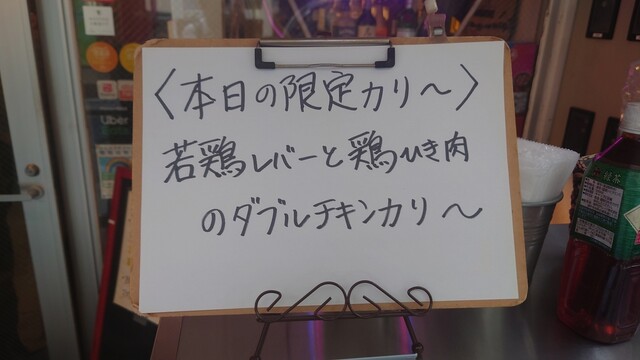 〈本日の限定カリ〜〉
若鶏レバーと鶏ひき肉
のダブルチキンカリ〜
Uber